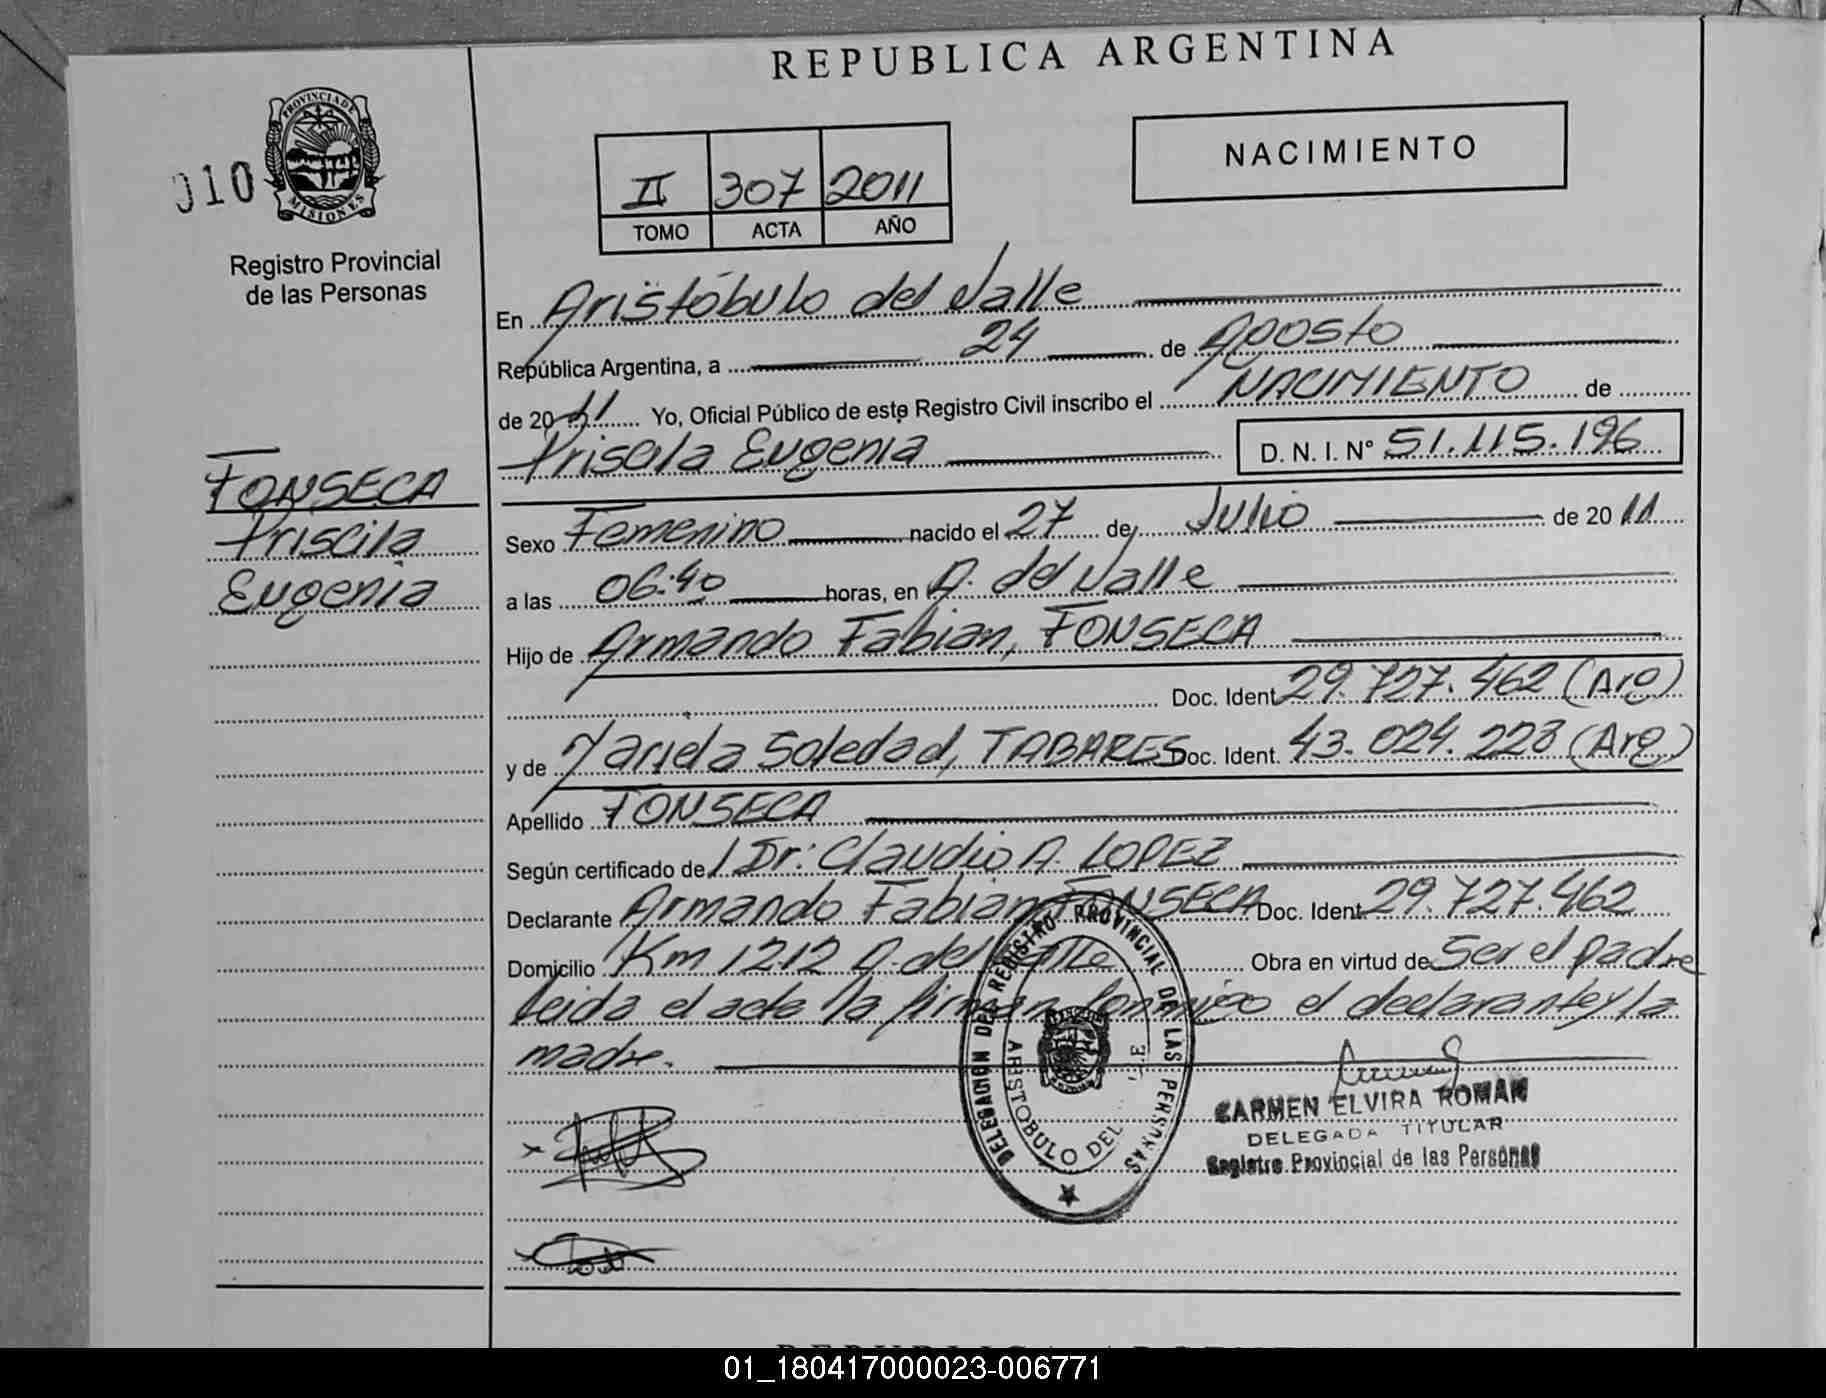 REPUBLICA ARGENTINA
NACIMIENTO
010
PROVINCIA DE
MISIONES
Registro Provincial
de las Personas
II 307 2011
TOMO ACTA AÑO
En Aristóbulo del Valle
República Argentina, a 24 de Agosto
de 2011 Yo, Oficial Público de este Registro Civil inscribo el NACIMIENTO de
Priscila Eugenia D. N. I. Nº 51.115.196
FONSECA
Priscila
Eugenia
Sexo Femenino nacido el 27 de Julio de 2011
a las 06:40 horas, en A. del Valle
Hijo de Armando Fabian, FONSECA
Doc. Ident. 29.727.462 (Arg)
y de Mariela Soledad, TABARES Doc. Ident. 43.024.228 (Arg)
Apellido FONSECA
Según certificado de Dr: Claudio A. LOPEZ
Declarante Armando Fabian FONSECA Doc. Ident. 29.727.462
Domicilio Km 1212 A. del Valle Obra en virtud de Ser el padre
leida el acta la firman conmigo el declarante y la
madre.
DELEGACIÓN DEL REGISTRO PROVINCIAL DE LAS PERSONAS
ARISTOBULO DEL
CARMEN ELVIRA ROMAN
DELEGADA TITULAR
Registro Provincial de las Personas
REPUBLICA ARGENTINA
01_180417000023-006771